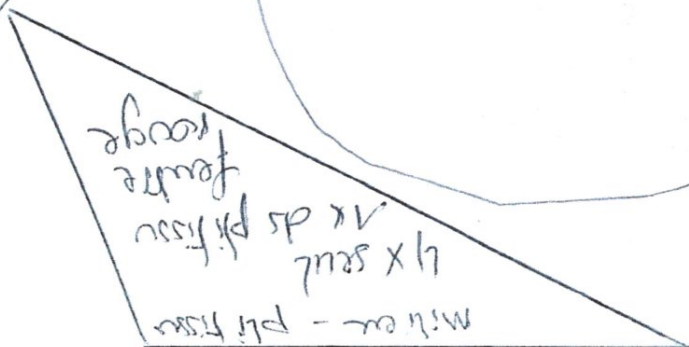 milieu - pli tissu
4 x seul
1x ds pli tissu
feutre
rouge